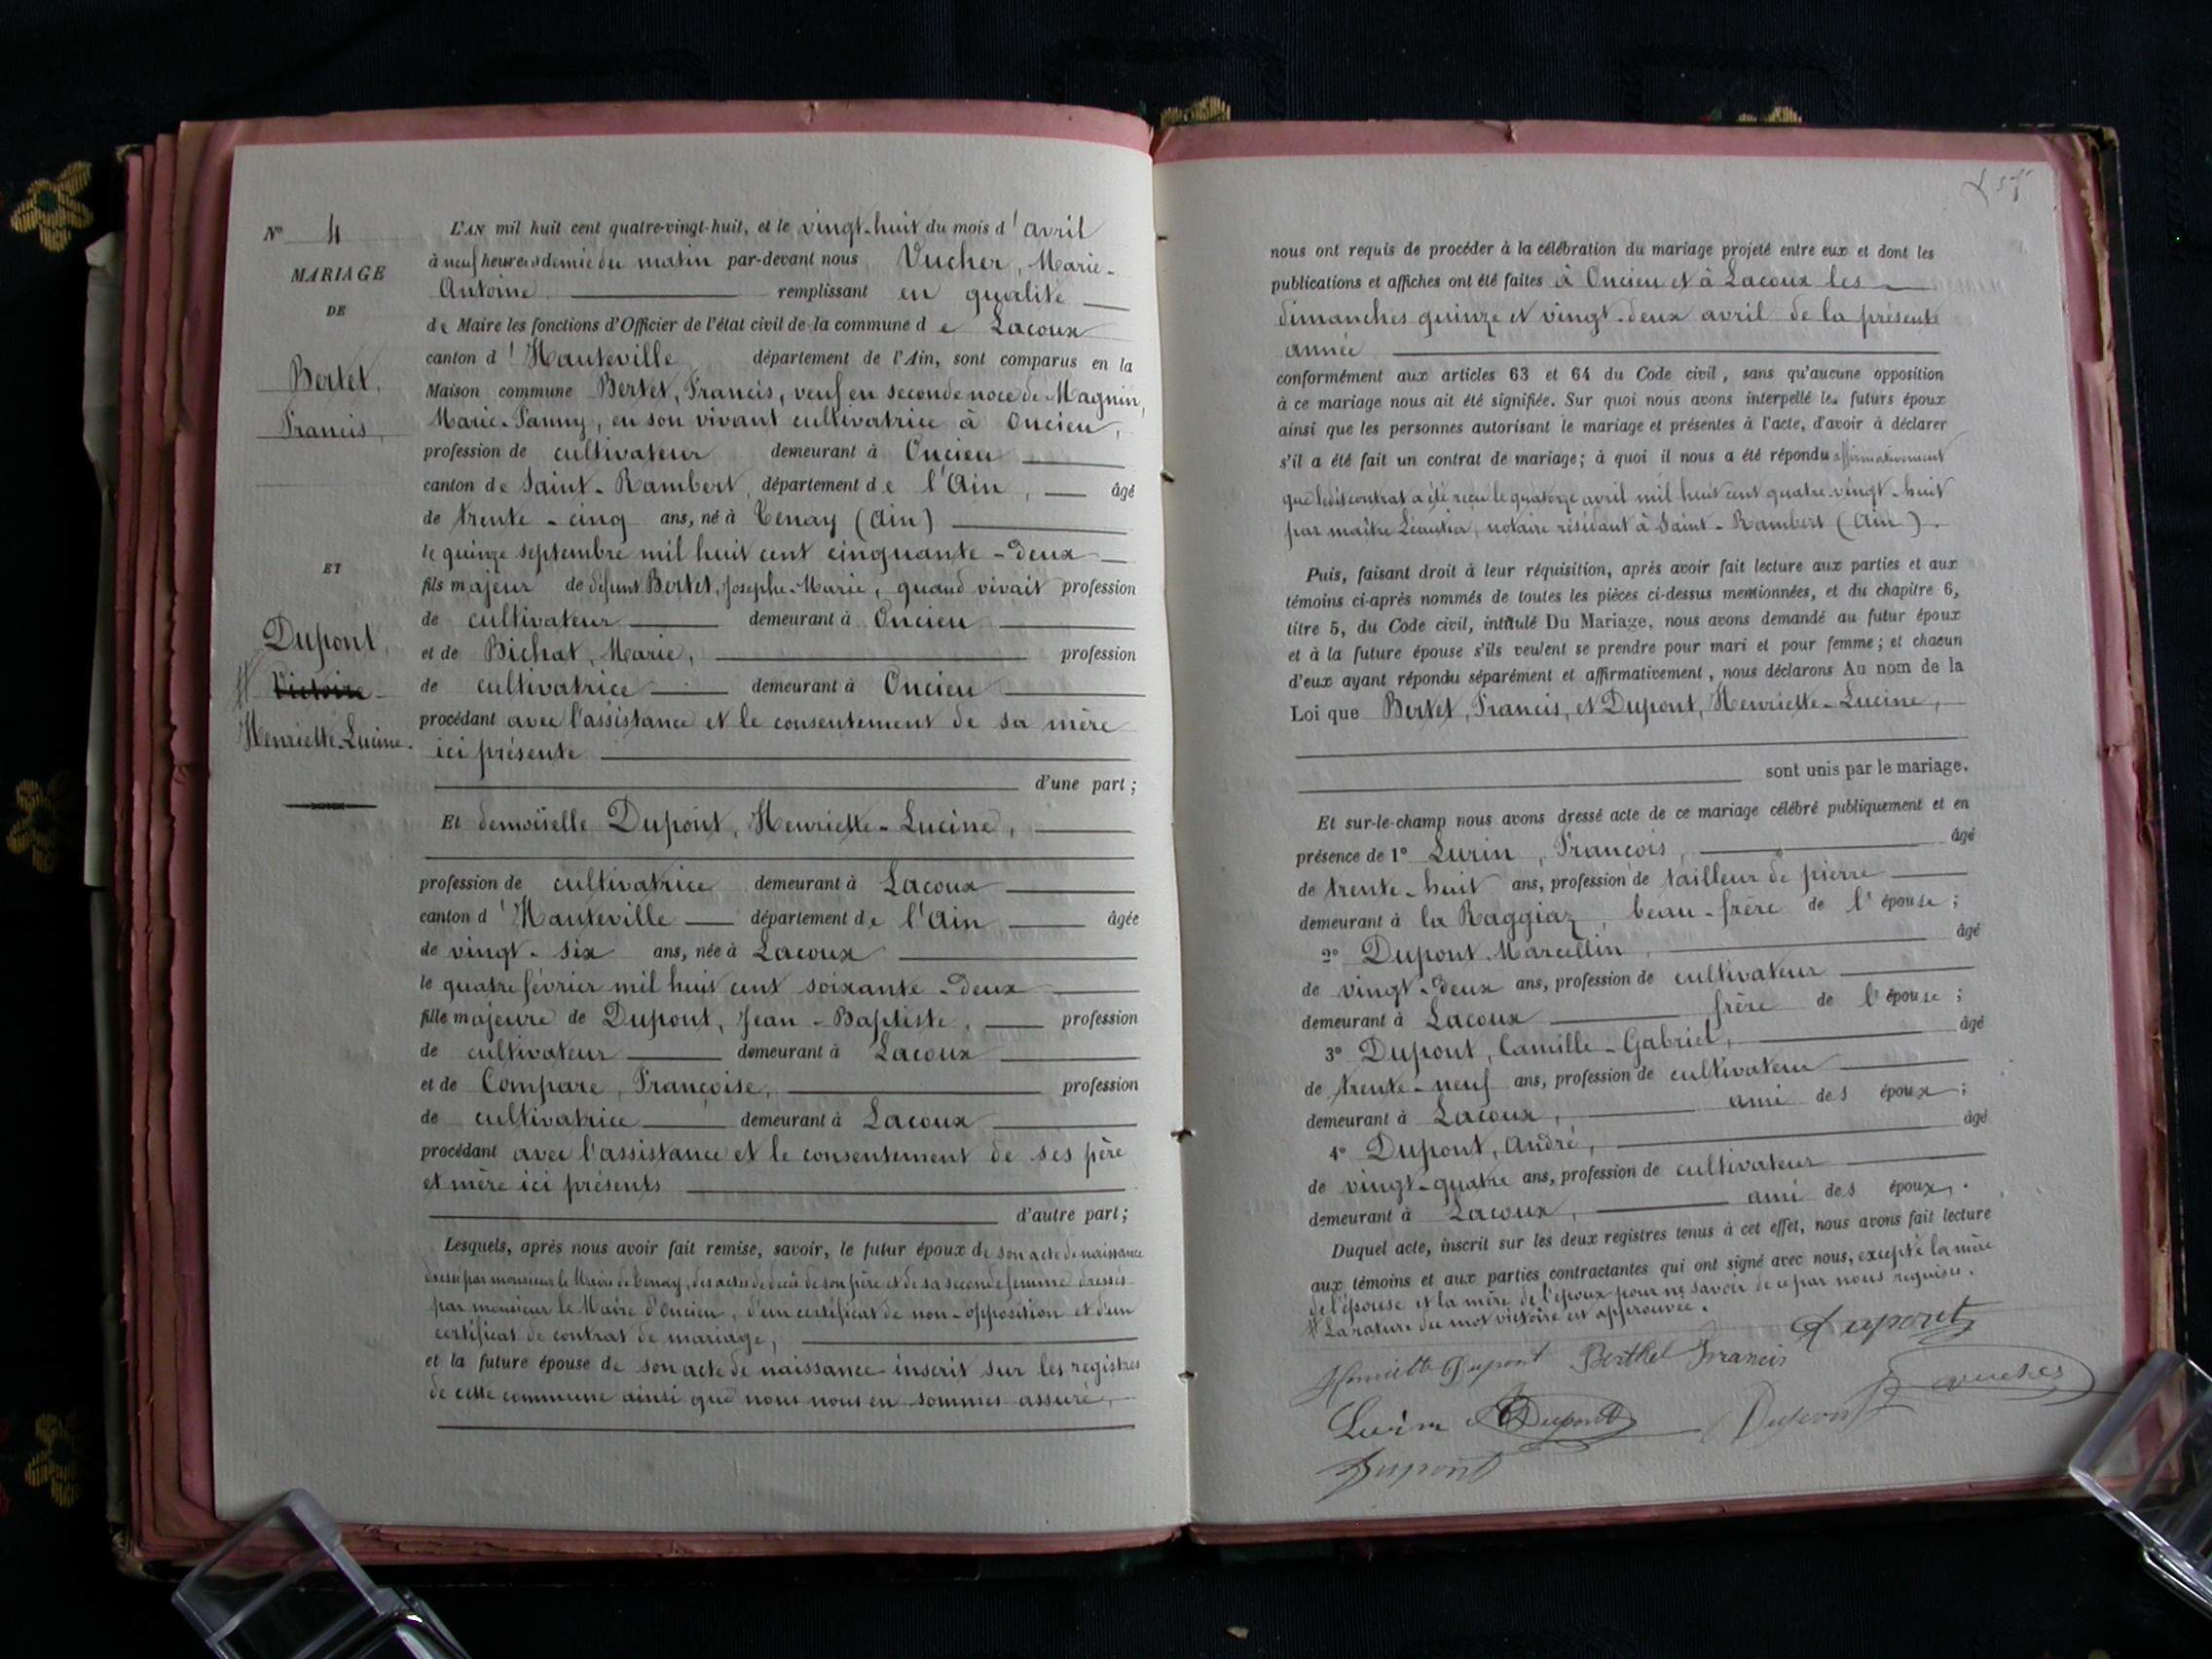 N° 4
MARIAGE
DE
Bertet,
Francis,
ET
Dupont,
# Victoire
Henriette-Lucine.
L'AN mil huit cent quatre-vingt-huit, et le vingt-huit du mois d'avril
à neuf heures et demie du matin par-devant nous Vucher, Marie-
Antoine remplissant en qualité
de Maire les fonctions d'Officier de l'état civil de la commune de Lacoux
canton d'Hauteville département de l'Ain, sont comparus en la
Maison commune Bertet, Francis, veuf en seconde noce de Magnin,
Marie-Fanny, en son vivant cultivatrice à Oncieu,
profession de cultivateur demeurant à Oncieu
canton de Saint-Rambert, département de l'Ain, âgé
de trente-cinq ans, né à Tenay (Ain)
le quinze septembre mil huit cent cinquante-deux
fils majeur de défunt Bertet, Josephe-Marie, quand vivait profession
de cultivateur demeurant à Oncieu
et de Bichat, Marie, profession
de cultivatrice demeurant à Oncieu
procédant avec l'assistance et le consentement de sa mère
ici présente
d'une part;
Et demoiselle Dupont, Henriette-Lucine,
profession de cultivatrice demeurant à Lacoux
canton d'Hauteville département de l'Ain âgée
de vingt-six ans, née à Lacoux
le quatre février mil huit cent soixante-deux
fille majeure de Dupont, Jean-Baptiste, profession
de cultivateur demeurant à Lacoux
et de Compare, Françoise, profession
de cultivatrice demeurant à Lacoux
procédant avec l'assistance et le consentement de ses père
et mère ici présents
d'autre part;
Lesquels, après nous avoir fait remise, savoir, le futur époux de son acte de naissance
dressé par monsieur le Maire de Tenay, des actes de décès de son père et de sa seconde femme dressés
par monsieur le Maire d'Oncieu, d'un certificat de non-opposition et d'un
certificat de contrat de mariage,
et la future épouse de son acte de naissance inscrit sur les registres
de cette commune ainsi que nous nous en sommes assuré,
nous ont requis de procéder à la célébration du mariage projeté entre eux et dont les
publications et affiches ont été faites à Oncieu et à Lacoux les
dimanches quinze et vingt-deux avril de la présente
année
conformément aux articles 63 et 64 du Code civil, sans qu'aucune opposition
à ce mariage nous ait été signifiée. Sur quoi nous avons interpellé les futurs époux
ainsi que les personnes autorisant le mariage et présentes à l'acte, d'avoir à déclarer
s'il a été fait un contrat de mariage; à quoi il nous a été répondu affirmativement
que ledit contrat a été reçu le quatorze avril mil huit cent quatre-vingt-huit
par maître Léautier, notaire résidant à Saint-Rambert (Ain).
Puis, faisant droit à leur réquisition, après avoir fait lecture aux parties et aux
témoins ci-après nommés de toutes les pièces ci-dessus mentionnées, et du chapitre 6,
titre 5, du Code civil, intitulé Du Mariage, nous avons demandé au futur époux
et à la future épouse s'ils veulent se prendre pour mari et pour femme; et chacun
d'eux ayant répondu séparément et affirmativement, nous déclarons Au nom de la
Loi que Bertet, Francis, et Dupont, Henriette-Lucine,
sont unis par le mariage.
Et sur-le-champ nous avons dressé acte de ce mariage célébré publiquement et en
présence de 1° Lurin, François, âgé
de trente-huit ans, profession de tailleur de pierre
demeurant à la Raggiaz, beau-frère de l'épouse;
2° Dupont Marcellin, âgé
de vingt-deux ans, profession de cultivateur
demeurant à Lacoux frère de l'épouse;
3° Dupont, Camille-Gabriel, âgé
de trente-neuf ans, profession de cultivateur
demeurant à Lacoux, ami des époux;
4° Dupont, André, âgé
de vingt-quatre ans, profession de cultivateur
demeurant à Lacoux, ami des époux.
Duquel acte, inscrit sur les deux registres tenus à cet effet, nous avons fait lecture
aux témoins et aux parties contractantes qui ont signé avec nous, excepté la mère
de l'épouse et la mère de l'époux pour ne savoir de ce par nous requise.
# La rature du mot victoire est approuvée.
Dupont
Henriette Dupont Berthet Francis
Vucher
Lurin Dupont Dupont
Dupont